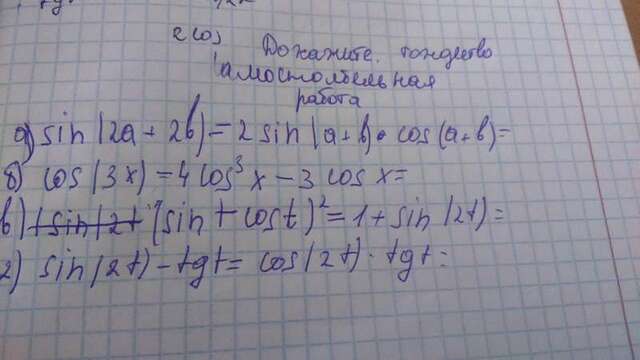 2 cos
Докажите тождество
самостоятельная
работа
а) sin(2a + 2b) = 2 sin(a+b) • cos(a+b) =
б) cos(3x) = 4 cos³ x − 3 cos x =
в) (sin t + cos t)² = 1 + sin(2t) =
г) sin(2t) − tg t = cos(2t) · tg t =